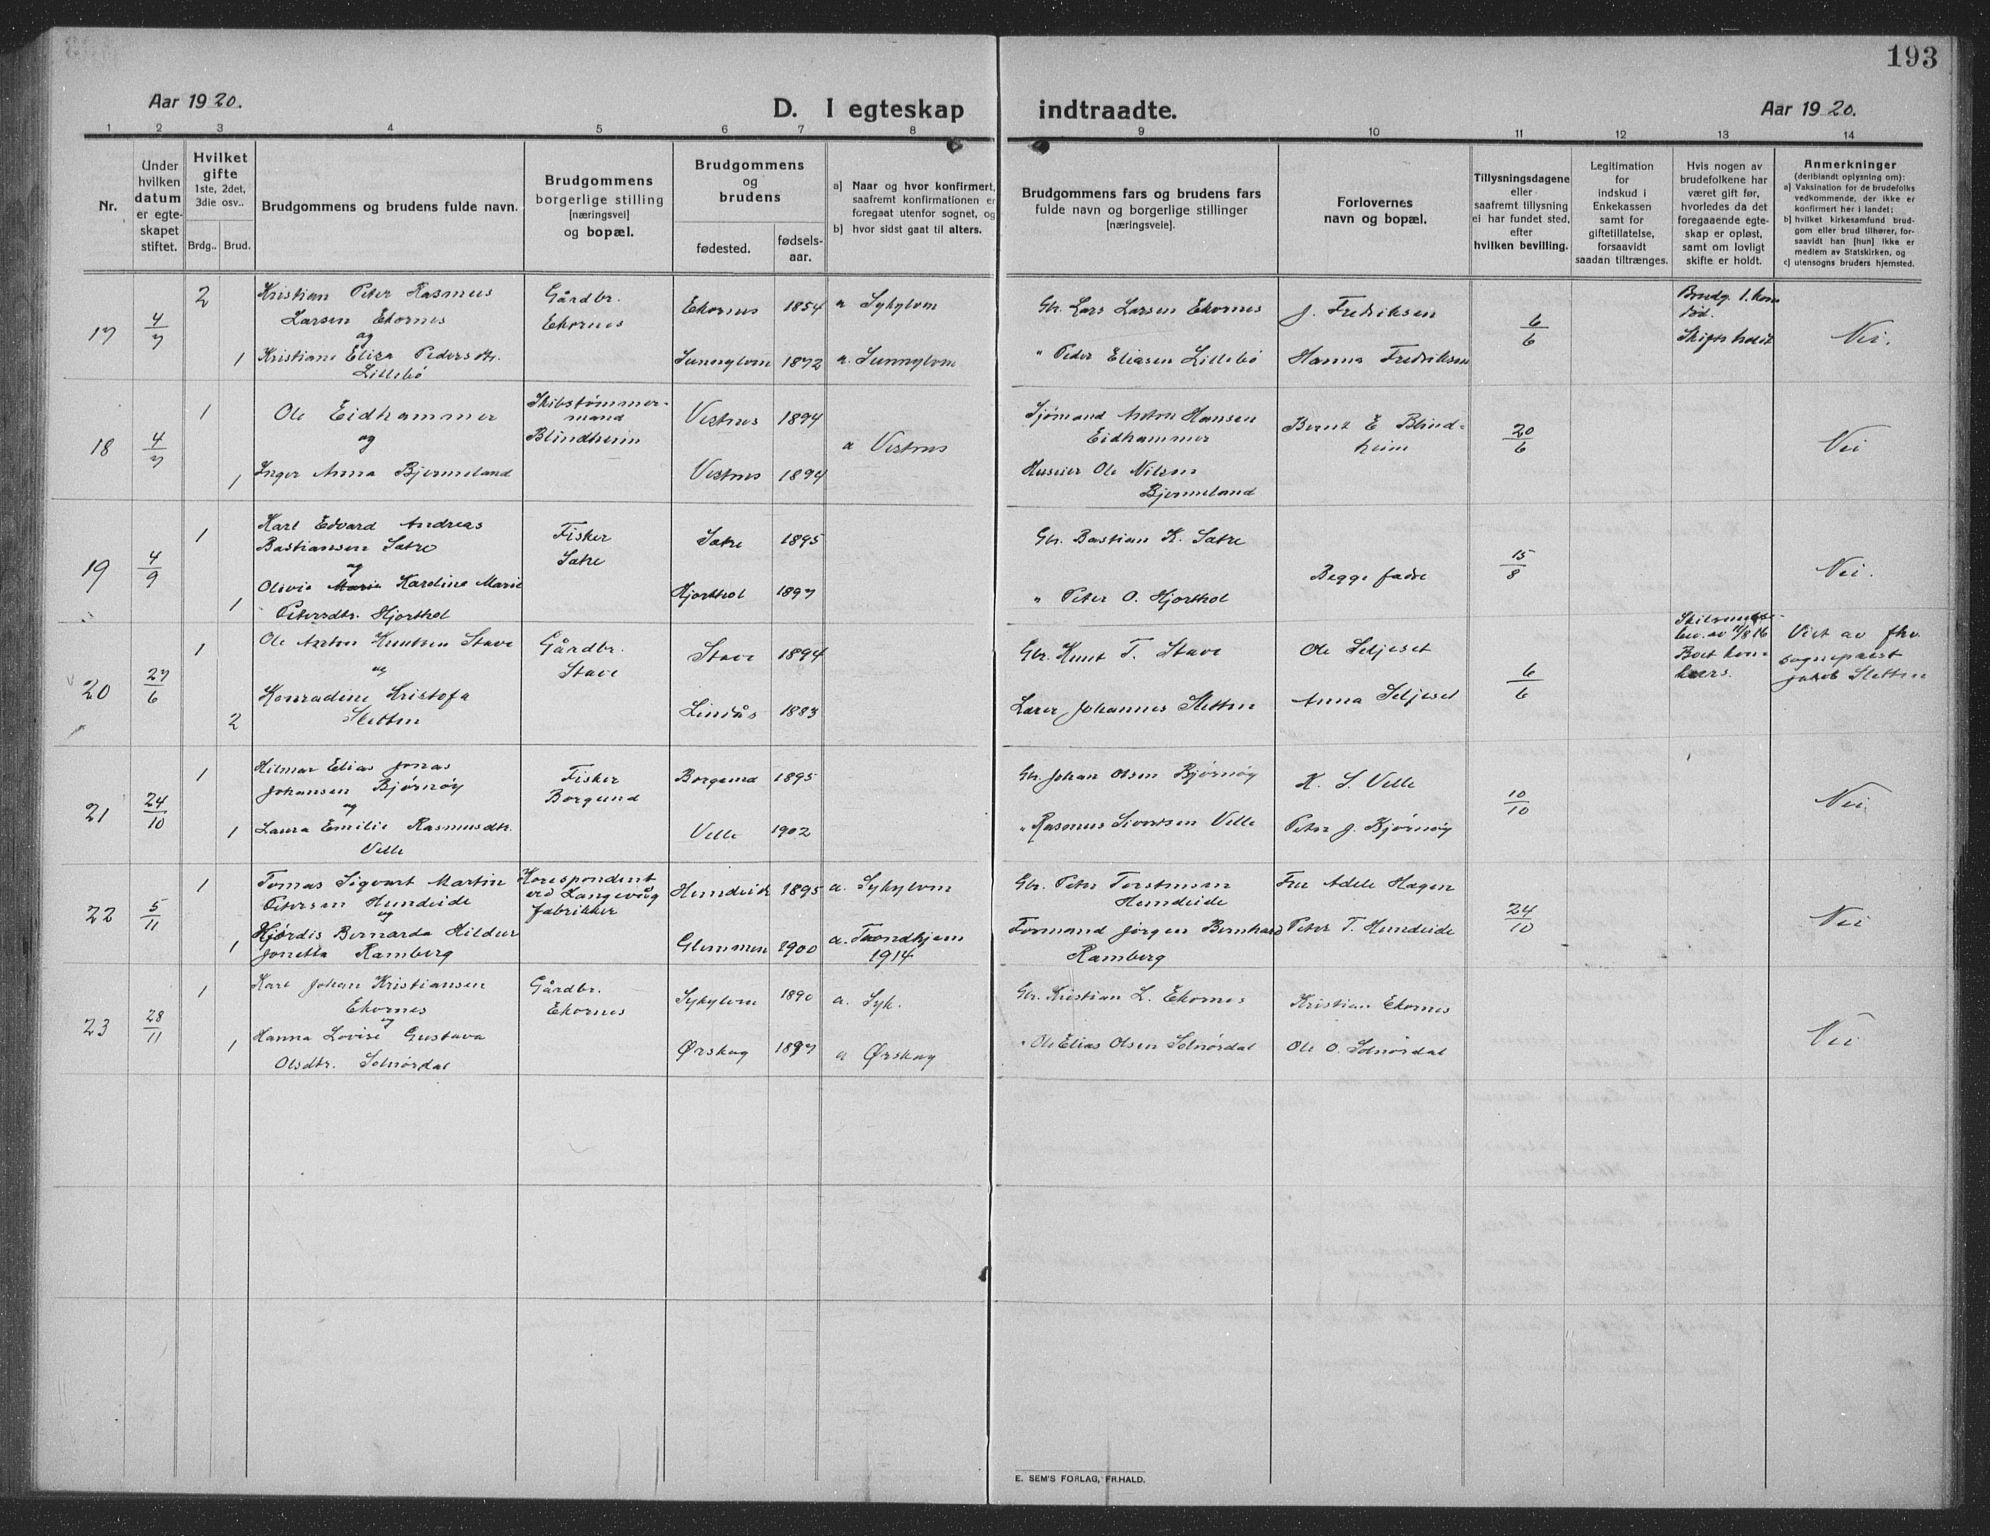 193
Aar 1920.
D. I egteskap indtraadte.
Aar 1920.
1 2 3 4 5 6 7 8 9 10 11 12 13 14
Nr.
Under hvilken datum er egteskapet stiftet.
Hvilket gifte 1ste, 2det, 3die osv..
Brdg.. Brud.
Brudgommens og brudens fulde navn.
Brudgommens borgerlige stilling [næringsvei] og bopæl.
Brudgommens og brudens
fødested. fødsels-aar.
a) Naar og hvor konfirmert, saafremt konfirmationen er foregaat utenfor sognet, og
b) hvor sidst gaat til alters.
Brudgommens fars og brudens fars fulde navn og borgerlige stillinger [næringsveie].
Forlovernes navn og bopæl.
Tillysningsdagene eller saafremt tillysning ei har fundet sted, efter hvilken bevilling.
Legitimation for indskud i Enkekassen samt for giftetillatelse, forsaavidt saadan tiltrænges.
Hvis nogen av brudefolkene har været gift før, hvorledes da det foregaaende egteskap er opløst, samt om lovligt skifte er holdt.
Anmerkninger (deriblandt oplysning om):
a) Vaksination for de brudefolks vedkommende, der ikke er konfirmert her i landet;
b) hvilket kirkesamfund brudgom eller brud tilhører, forsaavidt han [hun] ikke er medlem av Statskirken, og
c) utensogns bruders hjemsted.
17 4/7 2 Kristian Peter Rasmus Larsen Ekornes Gårdbr. Ekornes Ekornes 1854 a Sykylven Gbr. Lars Larsen Ekornes J. Fredriksen 6/6 Brudg. 1. kone død. Skifte holdt Nei.
og
1 Kristiane Eliza Pedersdtr. Lillebø Sunnylven 1872 a. Sunnylven " Peder Eliasen Lillebø Hanna Fredriksen
18 4/7 1 Ole Eidhammer Skibstømmermand Blindheim Vestnes 1894 a Vestnes Sjømand Anton Hansen Eidhammer Bernt E Blindheim 20/6 Nei
og
1 Inger Anna Bjermeland Vestnes 1894 Huseier Ole Nilsen Bjermeland
19 4/9 1 Karl Edvard Andreas Bastiansen Sætre Fisker Sætre Sætre 1895 Gbr. Bastian K. Sætre Begge fædre 15/8 Nei.
og
1 Olivie Marie Karoline Marie Petersdtr. Hjorthol Hjorthol 1897 " Peter O. Hjorthol
20 27/6 1 Ole Anton Knutsen Stave Gårdbr. Stave Stave 1894 Gbr. Knut T. Stave Ole Seljeset 6/6 Boet konkurs. Viet av fhv. sogneprest Jakob Sletten
og
2 Konradene Kristofa Sletten Lindås 1883 Lærer Johannes Sletten Anna Seljeset
21 24/10 1 Hilmar Elias Jonas Johansen Bjørnøy Fisker Borgund Borgund 1895 Gbr. Johan Olsen Bjørnøy K. S. Velle 10/10 Nei
og
1 Laura Emilie Rasmusdtr. Velle Velle 1902 " Rasmus Sivertsen Velle Peter J. Bjørnøy
22 5/11 1 Tomas Sigvart Martin Petersen Hundeide Korespondent ved Langevåg fabrikker Hundeide 1895 a. Sykylven Gbr. Peter Hundeide Fru Adele Hagen 24/10 Nei
og
1 Hjørdis Bernarda Hildur Jonetta Ramberg Glemmen 1900 a. Trondhjem 1914 Formand Jørgen Bernhard Ramberg Peter T. Hundeide
23 28/11 1 Karl Johan Kristiansen Ekornes Gårdbr. Ekornes Sykylven 1890 a. Syk. Gbr. Kristian L. Ekornes Kristian Ekornes Nei
og
1 Hanna Lovise Gustava Olsdtr. Solnørdal Ørskog 1897 a Ørskog " Ole Elias Olsen Solnørdal Ole O. Solnørdal
E. SEM'S FORLAG, FR.HALD.